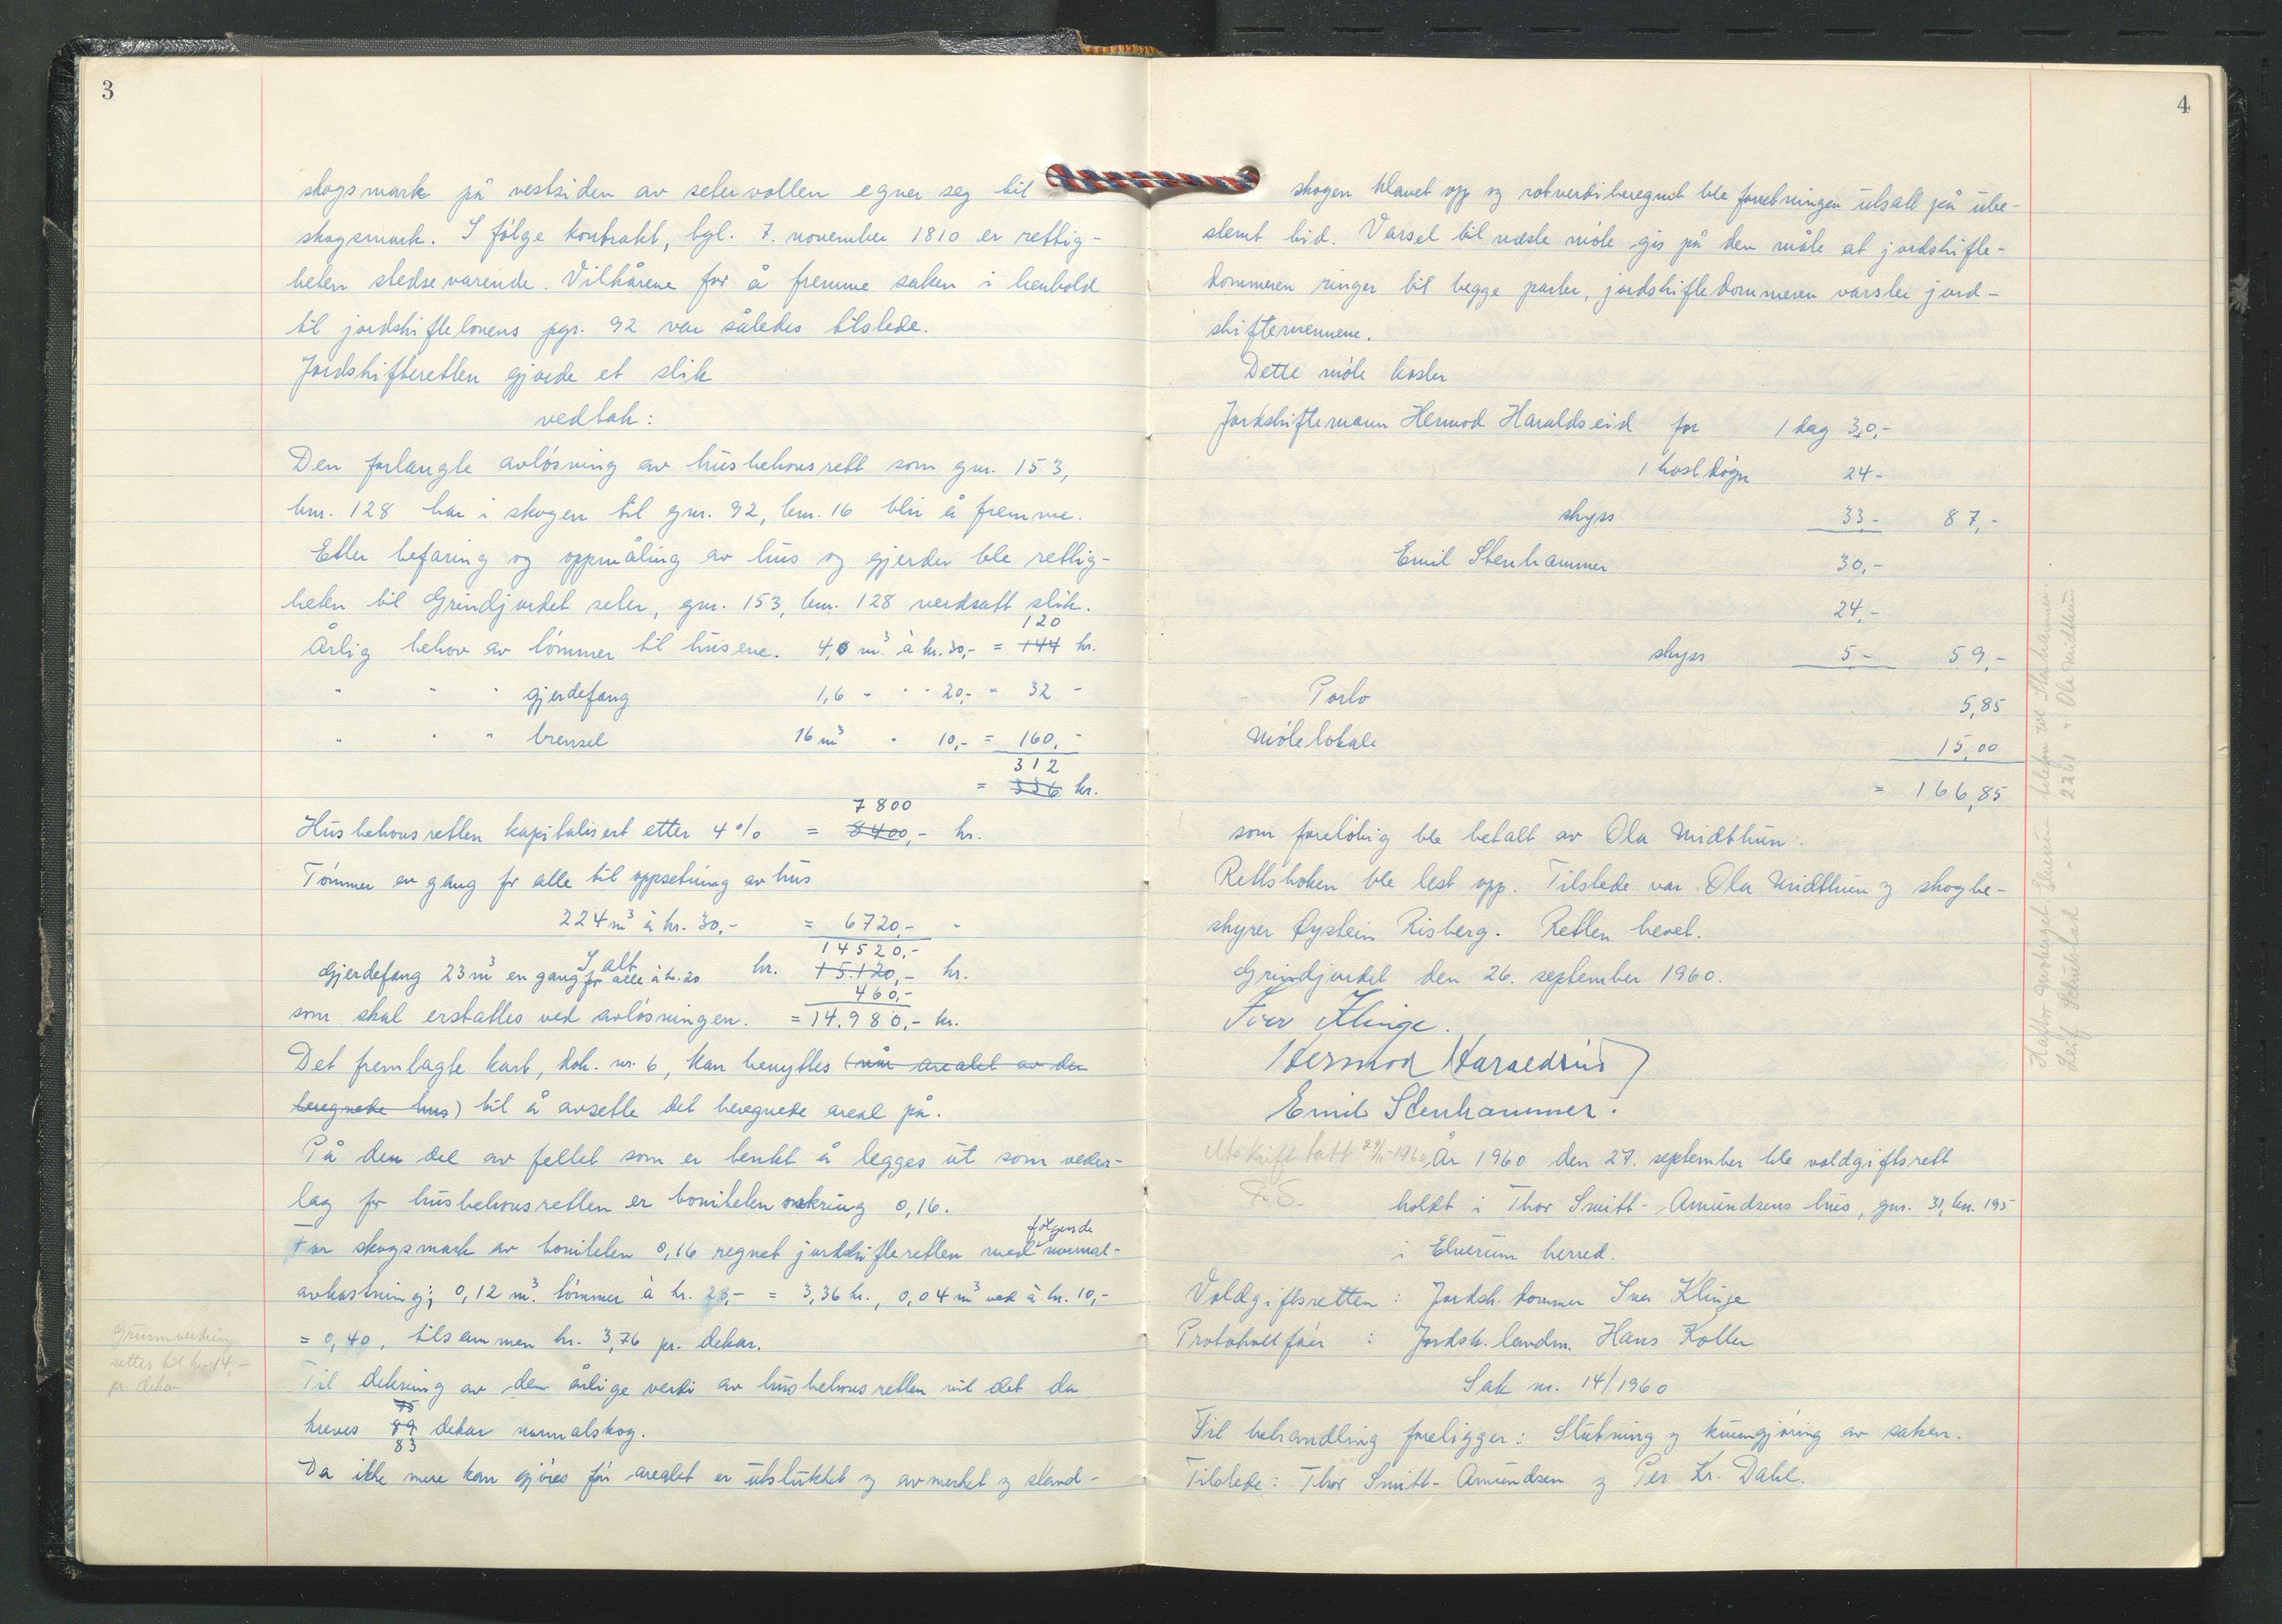 3
skogsmark på vestsiden av setervollen egner seg til
skogsmark. I følge kontrakt, tgl. 7. november 1810 er rettig-
heten stedsevarende. Vilkårene for å fremme saken i henhold
til jordskiftelovens pgr. 92 var således tilstede.
Jordskifteretten gjorde et slik
vedtak:
Den forlangte avløsning av husbehovsrett som gnr. 153,
bnr. 128 har i skogen til gnr. 92, bnr. 16 blir å fremme.
Etter befaring og oppmåling av hus og gjerder ble rettig-
heten til Grindjordet seter, gnr. 153, bnr. 128 verdsatt slik.
120
Årlig behov av tømmer til husene. 4,0 m³ à kr. 30,- = 144 kr.
" " " gjerdefang 1,6 " " " 20,- = 32 "
" " " brensel 16 m³ " 10,- = 160,-
312
= 336 kr.
7800
Husbehovsretten kapitalisert etter 4% = 8400,- kr.
Tømmer en gang for alle til oppsetning av hus
224 m³ à kr. 30,- = 6720,- "
14520,-
I alt kr. 15.120,- kr.
Gjerdefang 23 m³ en gang for alle à kr. 20 460,-
som skal erstattes ved avløsningen. = 14.980,- kr.
Det fremlagte kart, dok. nr. 6, kan benyttes (når arealet av der
beregnede hus) til å avsette det beregnede areal på.
På den del av feltet som er tenkt å legges ut som veder-
lag for husbehovsretten er boniteten omkring 0,16.
følgende
For skogsmark av boniteten 0,16 regnet jordskifteretten med normal-
avkastning; 0,12 m³ tømmer à kr. 28,- = 3,36 kr., 0,04 m³ ved à kr. 10,-
= 0,40, tilsammen kr. 3,76 pr. dekar.
Grunnverdien
rettes til kr. 14,-
pr. dekar
Til dekning av den årlige verdi av husbehovsretten vil det da
75
kreves 89 dekar normalskog.
83
Da ikke mere kan gjøres før arealet er utstukket og avmerket og stand-
4
skogen klavet opp og rotverdiberegnet ble forretningen utsatt på ube-
stemt tid. Varsel til næste møte gis på den måte at jordskifte-
dommeren ringer til begge parter, jordskiftedommeren varsler jord-
skiftemennene.
Dette møte koster
Jordskiftemann Hermod Haraldseid for 1 dag 30,-
1 kostdøgn 24-
skyss 33,- 87,-
Emil Stenhammer 30,-
24,-
skyss 5- 59,-
Porto 5,85
Møtelokale 15,00
= 166,85
som foreløbig ble betalt av Ola Midthun.
Rettsboken ble lest opp. Tilstede var Ola Midthun og skogbe-
styrer Øystein Risberg. Retten hevet.
Grindjordet den 26. september 1960.
Iver Klinge.
Hermod Haraldseid
Emil Stenhammer.
Utskrift tatt 29/11-1960
År 1960 den 27. september ble voldgiftsrett
holdt i Thor Smitt-Amundsens hus, gnr. 31, bnr. 195
i Elverum herred.
Voldgiftsretten: Jordsk. dommer Iver Klinge
Protokollfører: Jordsk. landm. Hans Koller
Sak nr. 14/1960
Til behandling foreligger: Slutning og kunngjøring av saken.
Tilstede: Thor Smitt-Amundsen og Per Kr. Dahl.
Elverum telefon ved Stenhammer.
Leif 2261 " Ola Midthun